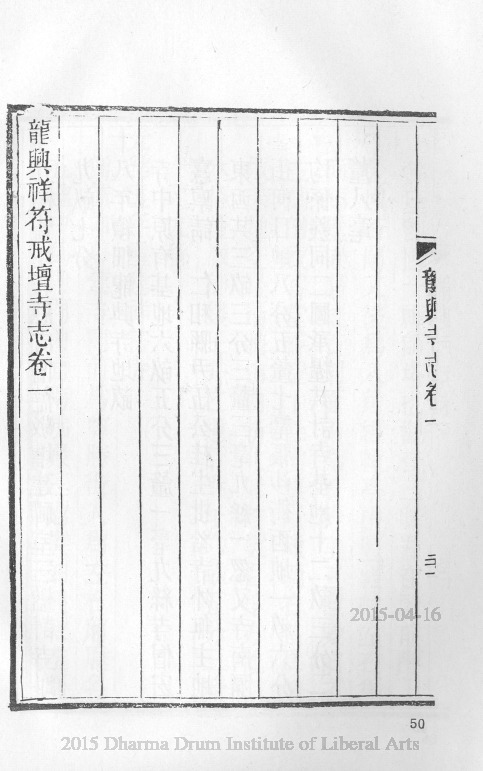 龍興寺志卷一
龍興祥符戒壇寺志卷一
2015-04-16
50
2015 Dharma Drum Institute of Liberal Arts